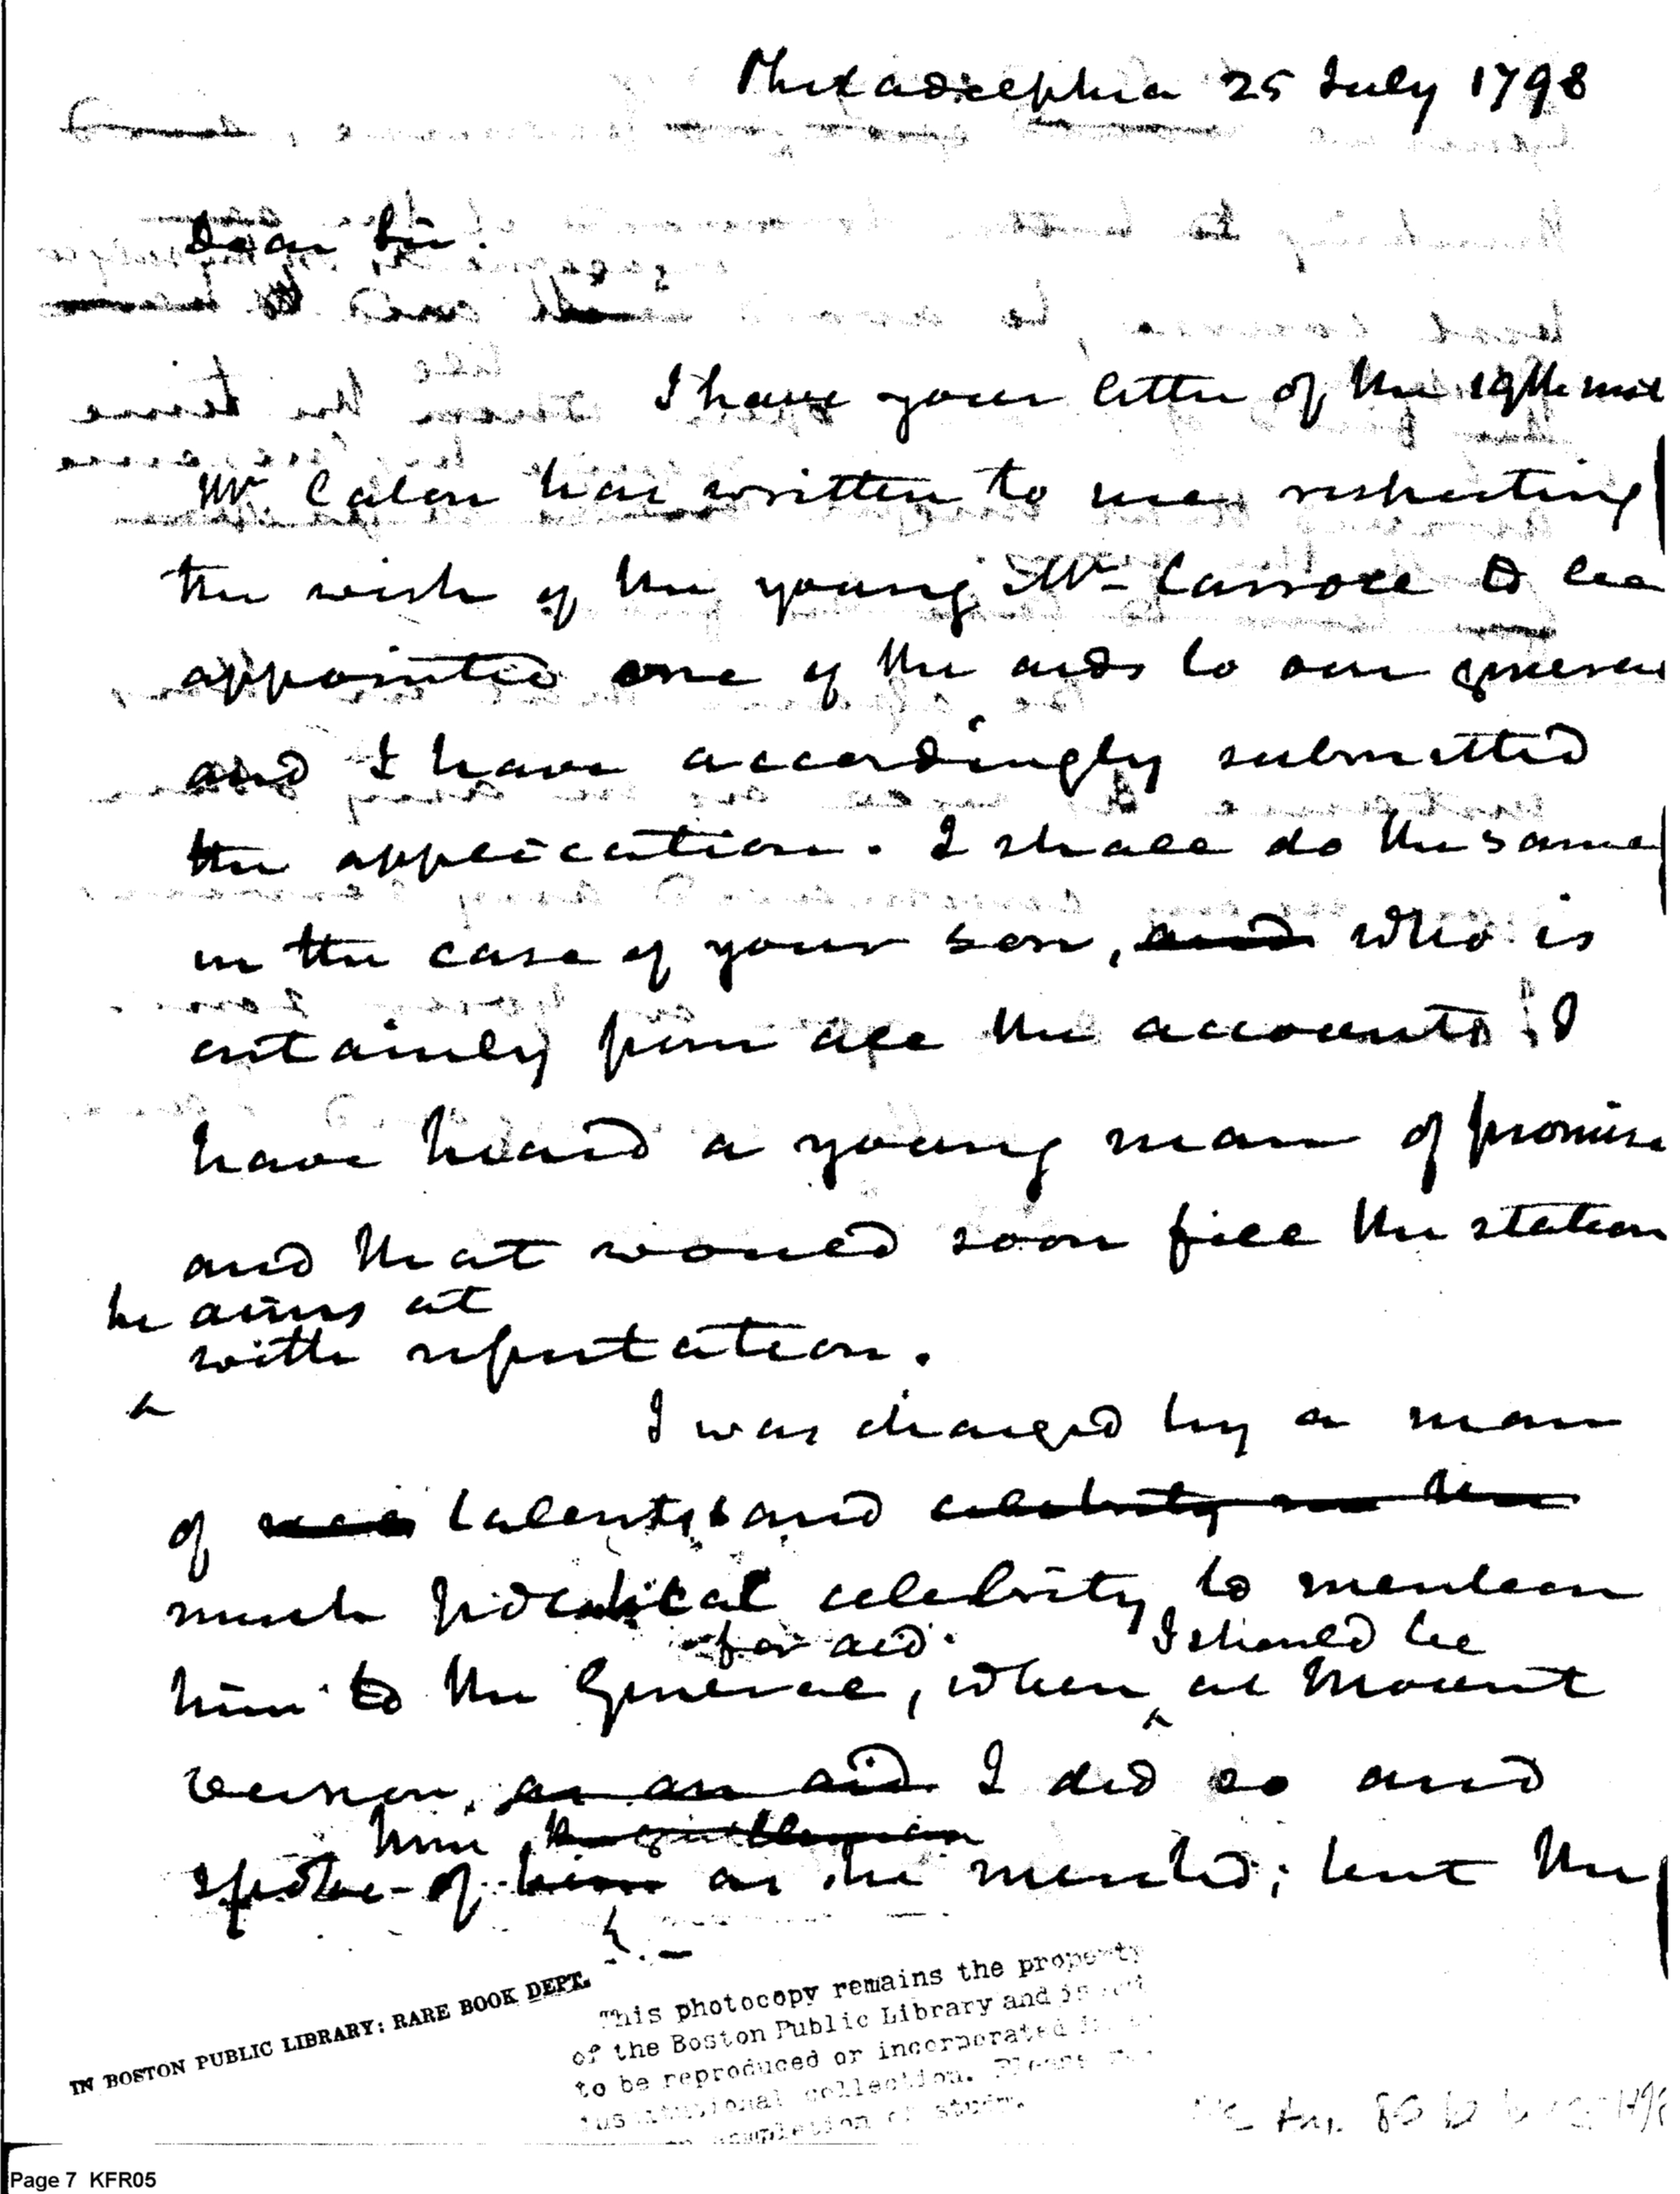 Philadelphia 25 July 1798
Dear Sir.
I have your letter of the 19th inst
Mr. Caton has written to me respecting
the wish of the young Mr Carroll to be
appointed one of the aids to our general
and I have accordingly submitted
the application. I shall do the same
in the case of your son, and who is
certainly from all the accounts I
have heard a young man of promise
and that would soon fill the station
he aims at
with reputation.
^
I was charged by a man
of talents and celebrity
much political celebrity, to mention
for aid. I should be
him to the General, when ^ at Mount
Vernon, as an aid I did so and
him the gentleman
spoke of him as he merited; but the
IN BOSTON PUBLIC LIBRARY: RARE BOOK DEPT.
This photocopy remains the property
of the Boston Public Library and is not
to be reproduced or incorporated in
collection. Please
completion of study.
Page 7 KFR05